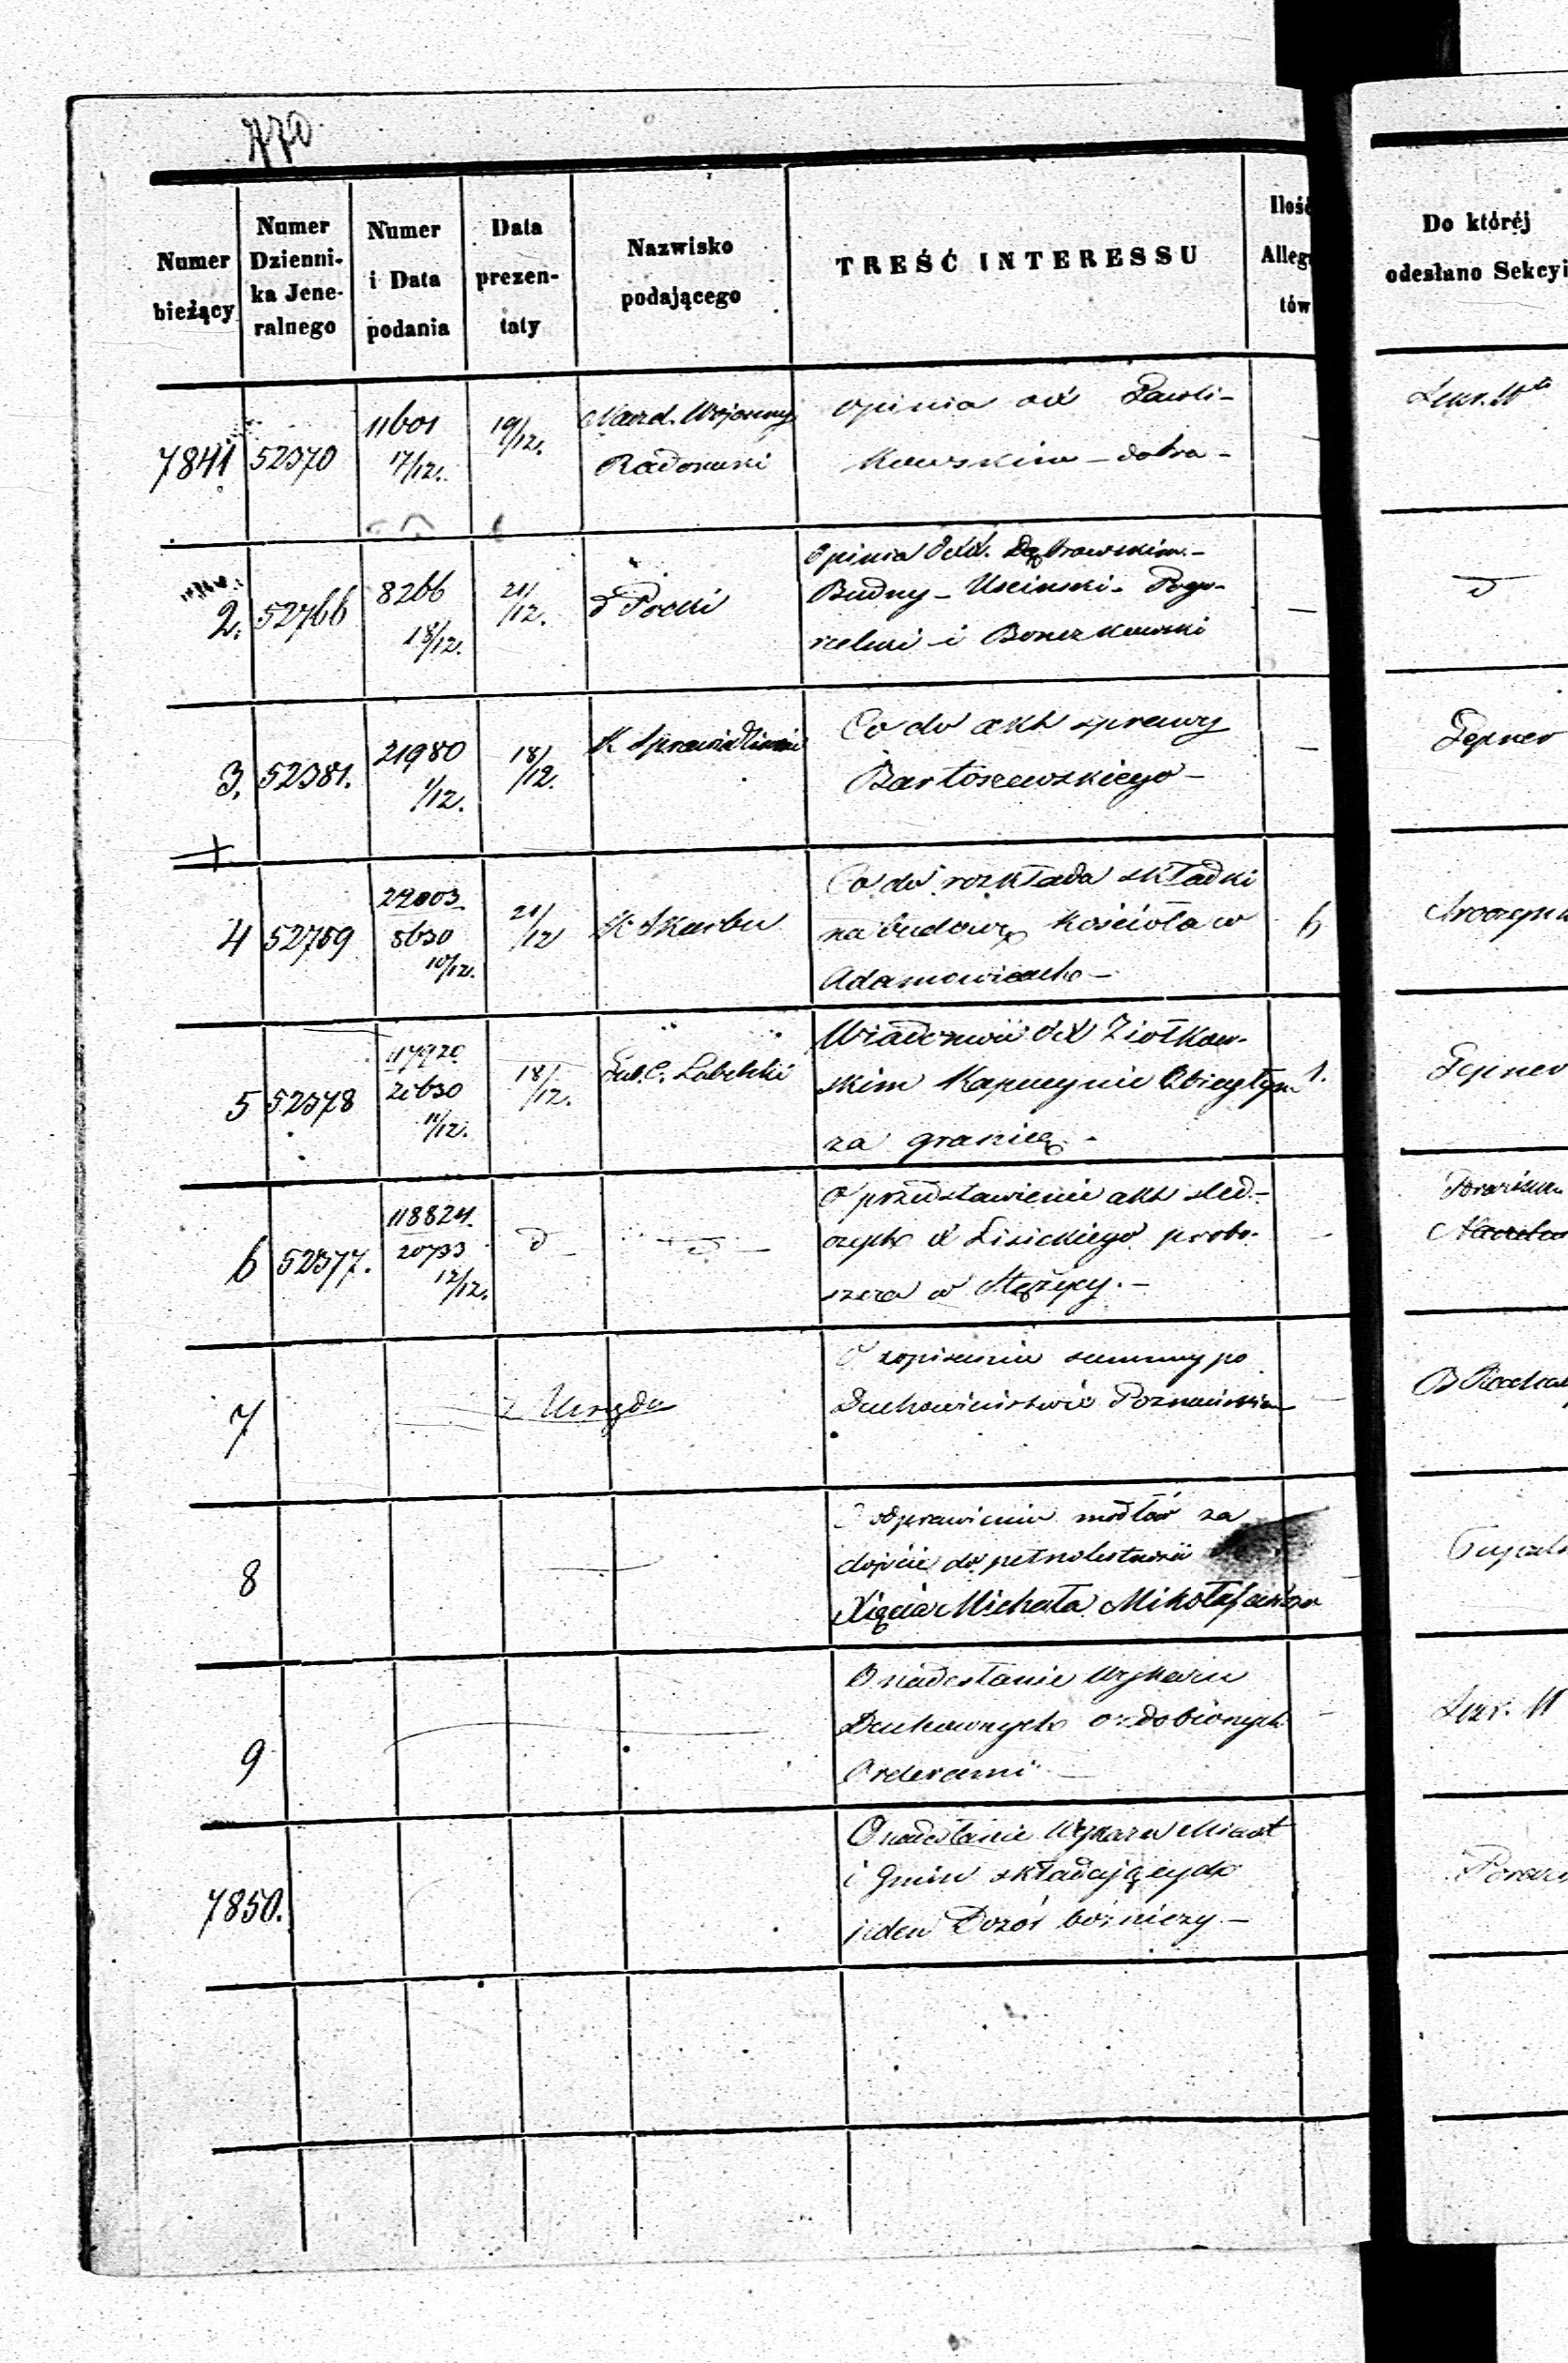 770
Numer bieżący
Numer Dzienni-ka Jene-ralnego
Numer i Data podania
Data prezen-taty
Nazwisko podającego
TREŚĆ INTERESSU
Ilość Alleg tów
Do któréj odesłano Sekcyi
7841 52370 11601 17/12. 19/12. Naczd. Wojenny Radomski
Opinia o X Pawli-
kowskim – dobra –
2. 52766 8266 18/12. 21/12. d Płocki
Opinia o XX. Dąbrowskim –
Budny – Uscinski – Pogo-
rzelski i Bonczkowski –
d
3. 52381. 21980 1/12. 18/12. K Sprawiedliwości
Co do akt sprawy
Bartoszewskiego –
Pepner
4 52759 29003 5630 10/12. 21/12 K Skarbu
Co do rozkładu składki
na budowę Kościoła w 6
Adamowicach –
5 52378 117920 21630 11/12. 18/12. Gub. C. Lubelski
Wiadomość o X Ziołkow-
skim Kapucynie zbiegłym 1.
za granicę –
Pepner
6 52377. 118824. 20733 12/12. d d
O przedstawienie akt śled-
czych X Lisickiego probo-
szcza w Stężycy. –
7 z Urzędu
O zapisaniu summy po
Duchowieństwie Poznańskim –
8
O odprawieniu modłów za
dojście do pełnoletności
Xięcia Michała Mikołajewicza
9
O nadesłanie Wykazu
Duchownych ozdobionych
Orderami –
7850.
O nadesłanie Wykazu Miast
i Gmin składających
jeden Dozór bożniczy –